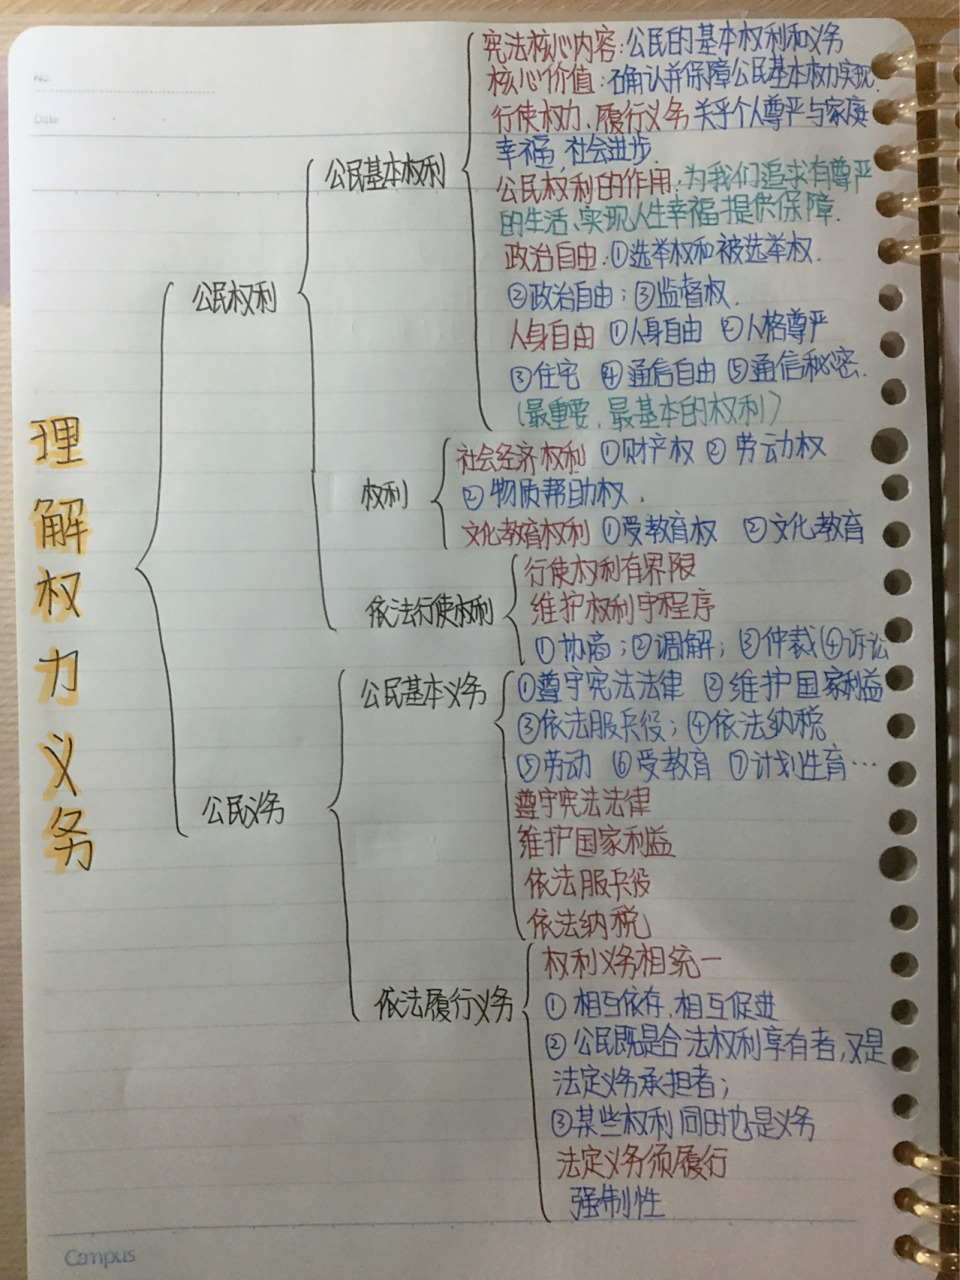 No.
Date
理解权力义务
公民权利
公民基本权利
宪法核心内容:公民的基本权利和义务
核心价值:确认并保障公民基本权力实现.
行使权力、履行义务 关乎个人尊严与家庭
幸福,社会进步.
公民权利的作用:为我们追求有尊严
的生活、实现人生幸福提供保障.
政治自由:①选举权和被选举权.
②政治自由;③监督权.
人身自由 ①人身自由 ②人格尊严
③住宅 ④通信自由 ⑤通信秘密.
(最重要,最基本的权利)
权利
社会经济权利 ①财产权 ② 劳动权
② 物质帮助权.
文化教育权利 ①受教育权 ②文化教育
依法行使权利
行使权利有界限
维护权利守程序
①协商;②调解;③仲裁④诉讼
公民义务
公民基本义务
①遵守宪法法律 ②维护国家利益
③依法服兵役;④依法纳税
⑤劳动 ⑥受教育 ⑦计划生育…
遵守宪法法律
维护国家利益
依法服兵役
依法纳税
依法履行义务
权利义务相统一
① 相互依存,相互促进
② 公民既是合法权利享有者,又是
法定义务承担者;
③某些权利同时也是义务
法定义务须履行
强制性
Campus